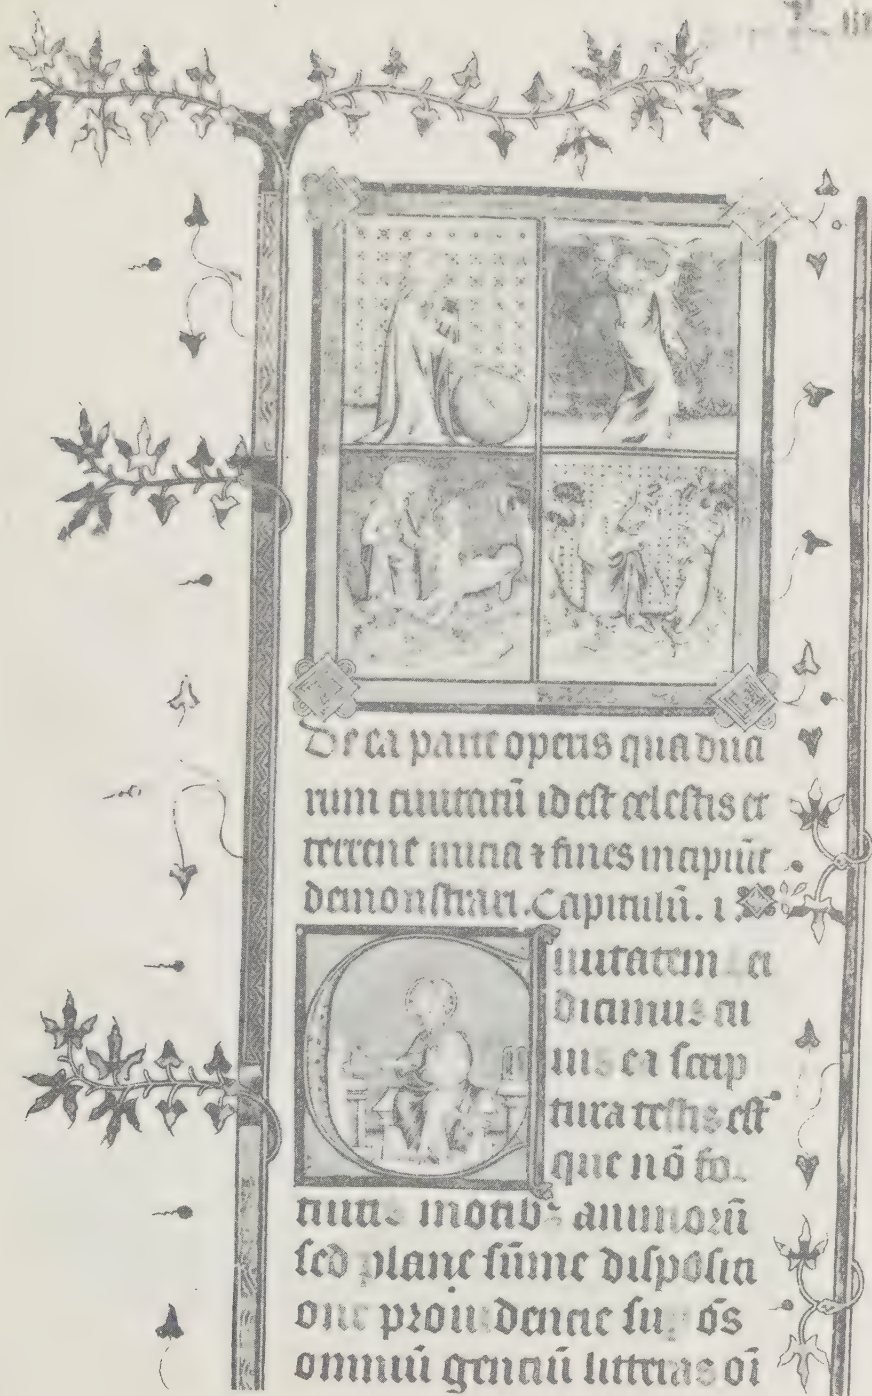 De ea parte operis qua dua
rum ciuitatū id est celestis et
terrene inicia ⁊ fines incipiūt
demonstrari. Capitulū. i.
iuitatem ei
dicimus cu
ius ea scrip
tura testis est
que nō for
tuitis motibꝫ animorū
sed plane sūme dispositi
one prouidencie sup ōs
omniū genciū litteras oī